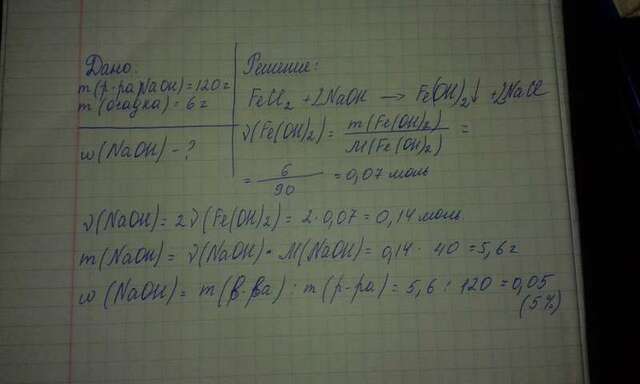 Дано:
m(р-ра NaOH)=120г
m(осадка)=6г
w(NaOH)-?
Решение:
FeCl₂ + 2NaOH → Fe(OH)₂↓ + 2NaCl
ν(Fe(OH)₂) = m(Fe(OH)₂) / M(Fe(OH)₂) =
= 6 / 90 = 0,07 моль
ν(NaOH)= 2ν(Fe(OH)₂) = 2·0,07 = 0,14 моль.
m(NaOH) = ν(NaOH)·M(NaOH)= 0,14 · 40 =5,6г
w(NaOH)= m(в-ва) : m(р-ра) = 5,6 : 120 = 0,05
(5%)